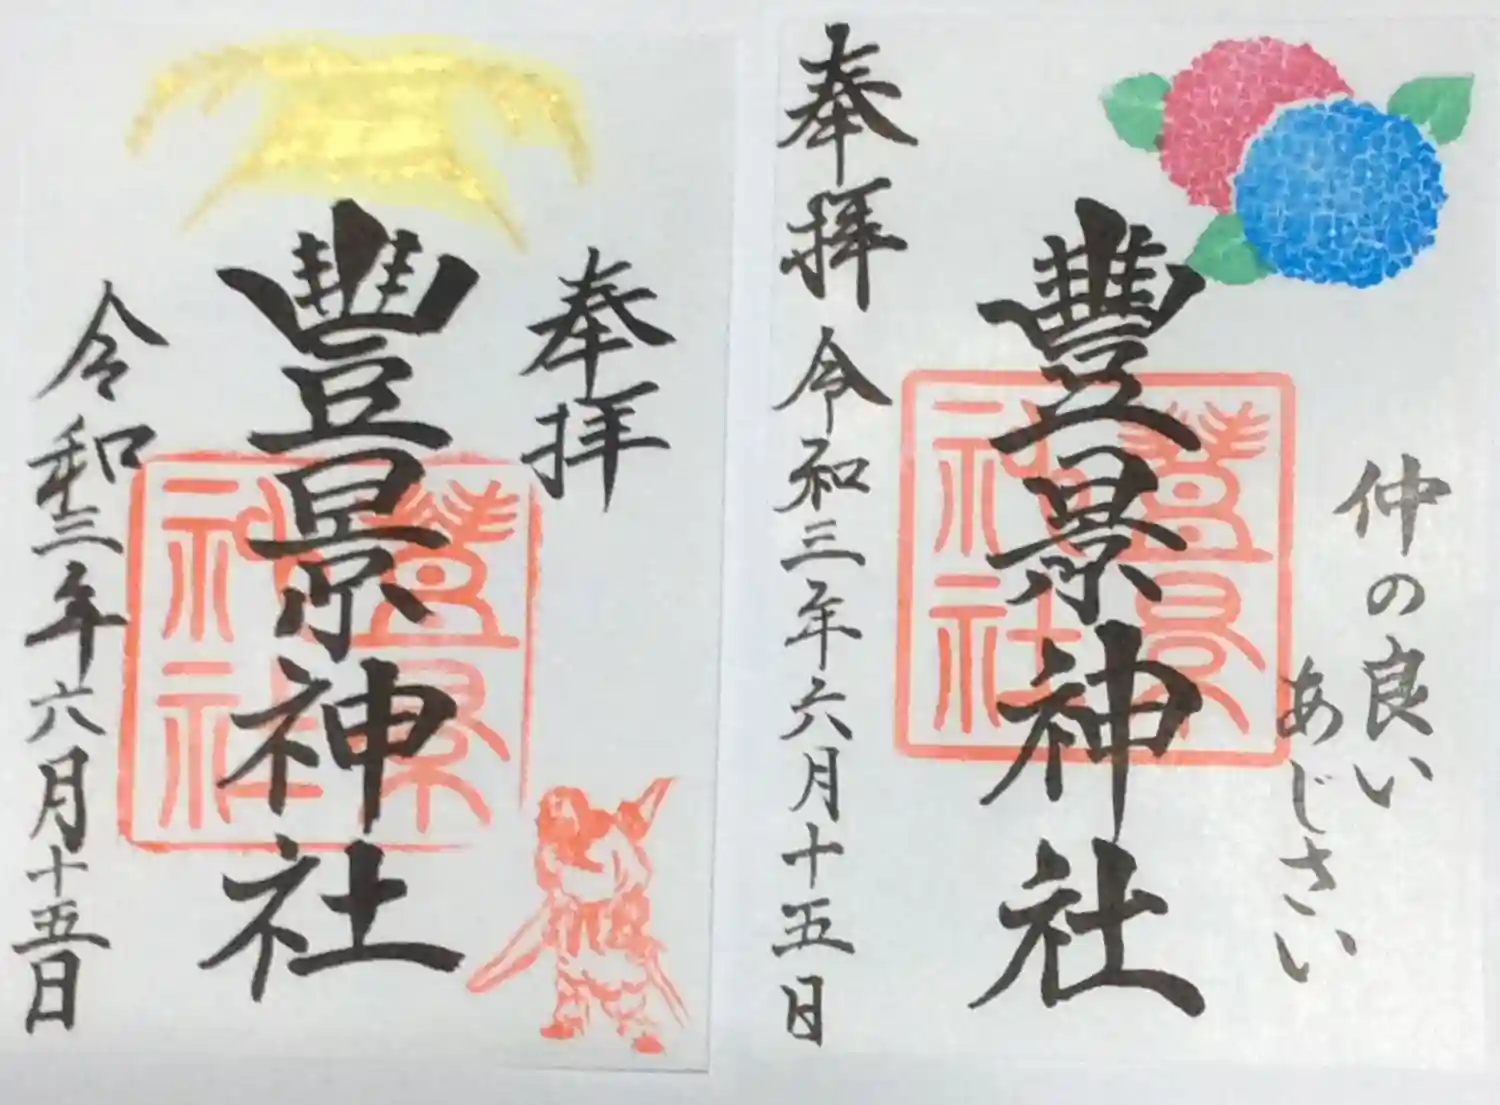 奉拝
豊景神社
令和三年六月十五日
豊景
神社
仲の良い
あじさい
豊景神社
奉拝 令和三年六月十五日
豊景
神社